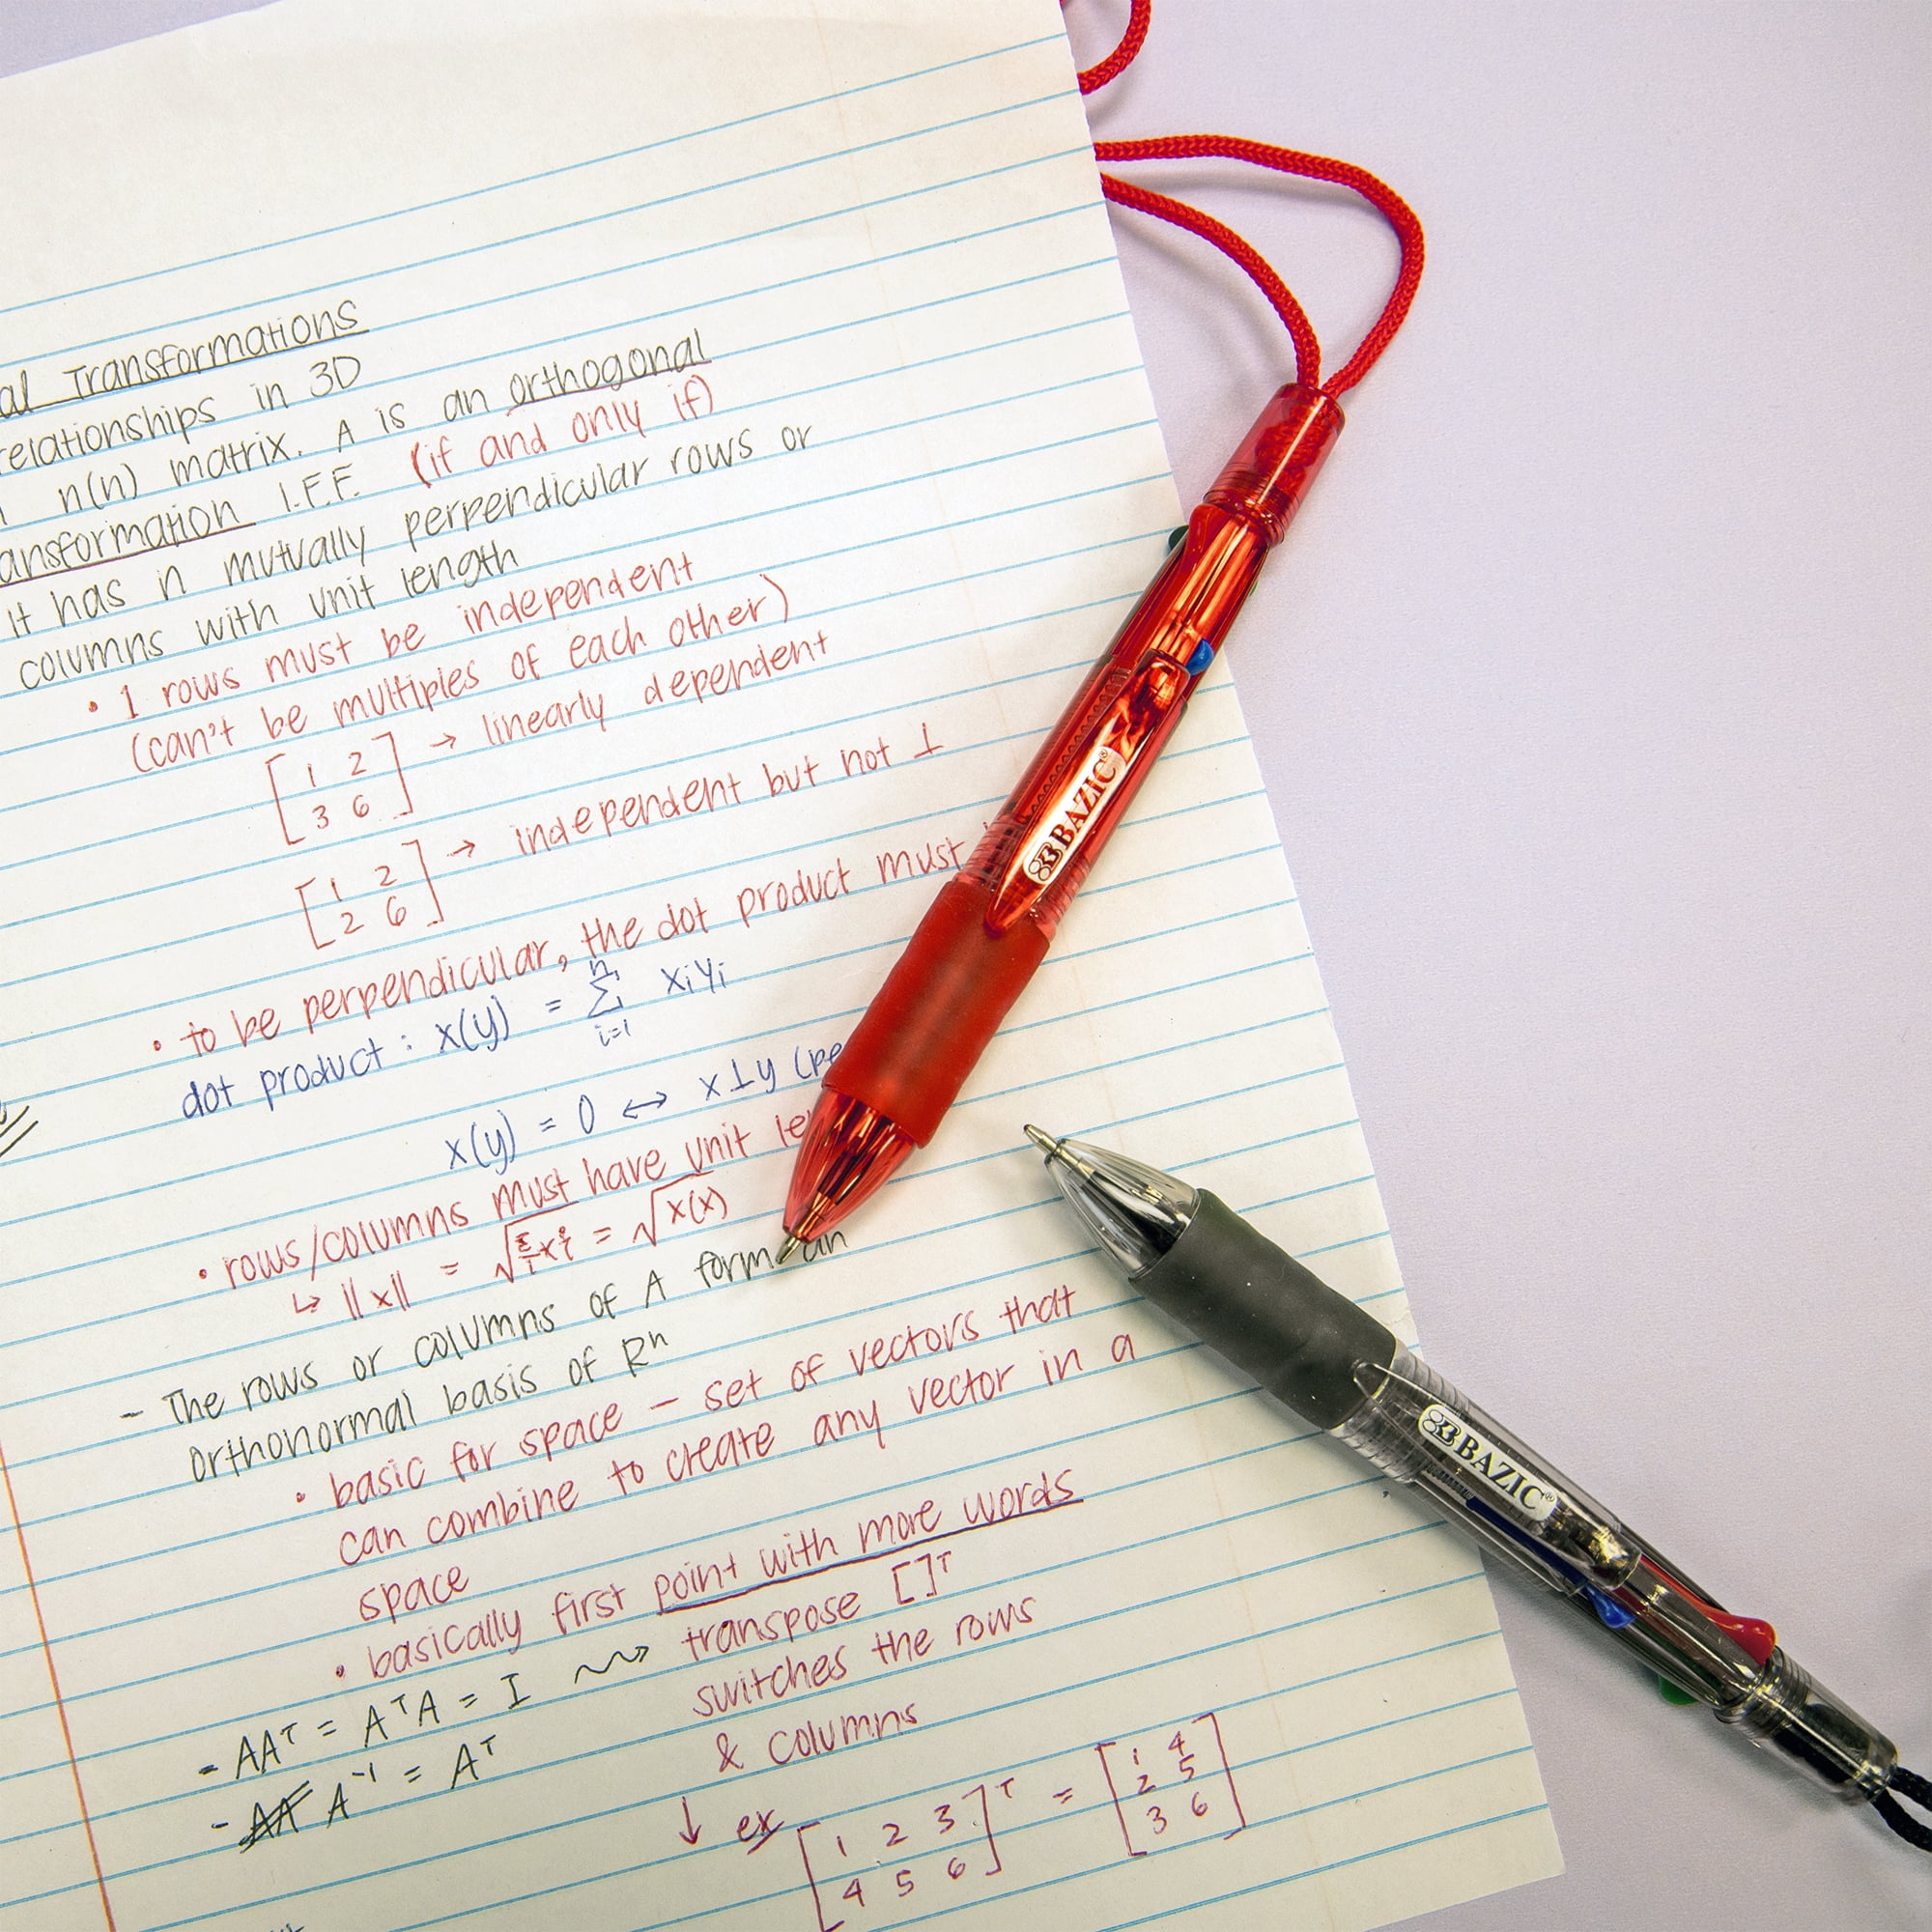 al Transformations
relationships in 3D
n(n) matrix. A is an orthogonal
ansformation I.F.F. (if and only if)
it has n mutually perpendicular rows or
columns with unit length
• 1 rows must be independent
(can't be multiples of each other)
[1 2
3 6] → linearly dependent
[1 2
2 6] → independent but not ⊥
• to be perpendicular, the dot product must
dot product: x(y) = n Σ i=1 xiyi
x(y) = 0 ↔ x⊥y (pe
• rows/columns must have unit le
↳ ||x|| = √Σxi² = √x(x)
- The rows or columns of A form an
orthonormal basis of Rⁿ
• basic for space - set of vectors that
can combine to create any vector in a
space
• basically first point with more words
- AAᵀ = AᵀA = I ⇝ transpose []ᵀ
switches the rows
& columns
- A⁻¹ = Aᵀ
↓ ex
[1 2 3
4 5 6]ᵀ = [1 4
2 5
3 6]
BAZIC®
BAZIC®